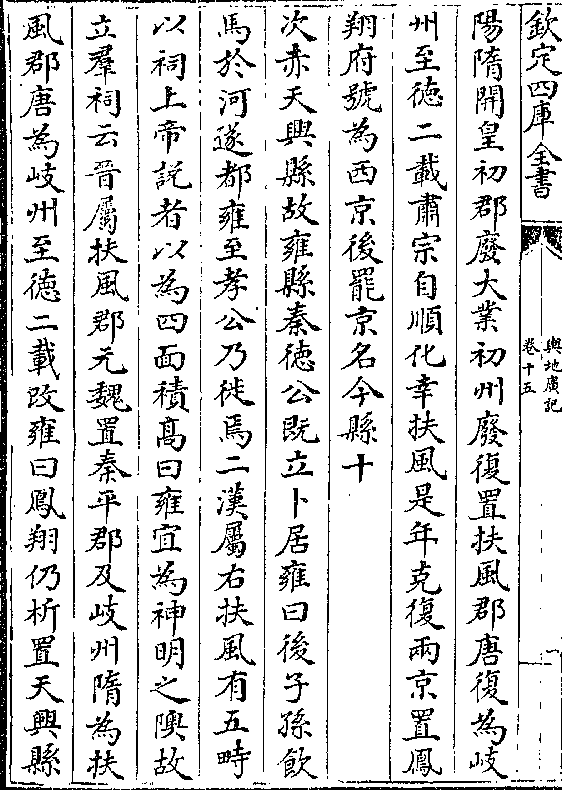 欽定四庫全書
輿地廣記
卷十五
陽隋開皇初郡廢大業初州廢復置扶風郡唐復為岐
州至徳二載肅宗自順化幸扶風是年克復兩京置鳳
翔府號為西京後罷京名今縣十
次赤天興縣故雍縣秦徳公既立卜居雍曰後子孫飲
馬於河遂都雍至孝公乃徙焉二漢屬右扶風有五畤
以祠上帝説者以為四面積髙曰雍宜為神明之隩故
立羣祠云晉屬扶風郡元魏置秦平郡及岐州隋為扶
風郡唐為岐州至徳二載改雍曰鳳翔仍析置天興縣